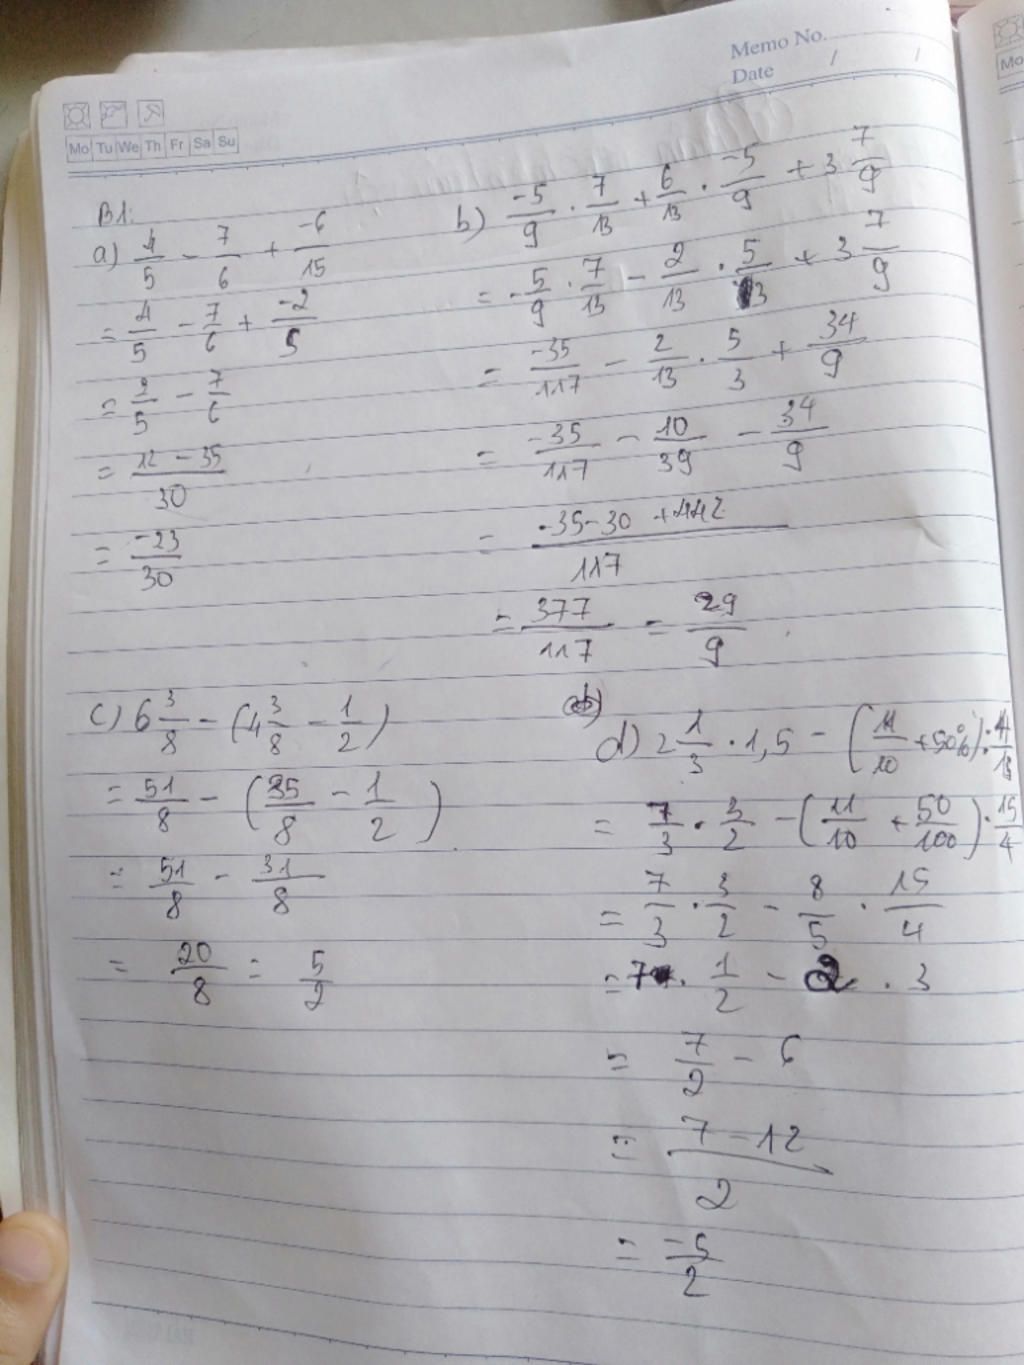 Memo No.
Date / /
Mo Tu We Th Fr Sa Su
B1:
a) 4/5 - 7/6 + -6/15
= 4/5 - 7/6 + -2/5
= 2/5 - 7/6
= 12 - 35/30
= -23/30
b) -5/9 . 7/13 + 6/13 . -5/9 + 3 7/9
= -5/9 . 7/13 - 2/13 . 5/3 + 3 7/9
= -35/117 - 2/13 . 5/3 + 34/9
= -35/117 - 10/39 - 34/9
= -35-30 +442/117
= 377/117 = 29/9
c) 6 3/8 - (4 3/8 - 1/2)
= 51/8 - (35/8 - 1/2)
= 51/8 - 31/8
= 20/8 = 5/2
d) 2 1/3 . 1,5 - (11/10 + 50%) : 4/15
= 7/3 . 3/2 - (11/10 + 50/100) . 15/4
= 7/3 . 3/2 - 8/5 . 15/4
= 7 . 1/2 - 2 . 3
= 7/2 - 6
= 7 - 12/2
= -5/2